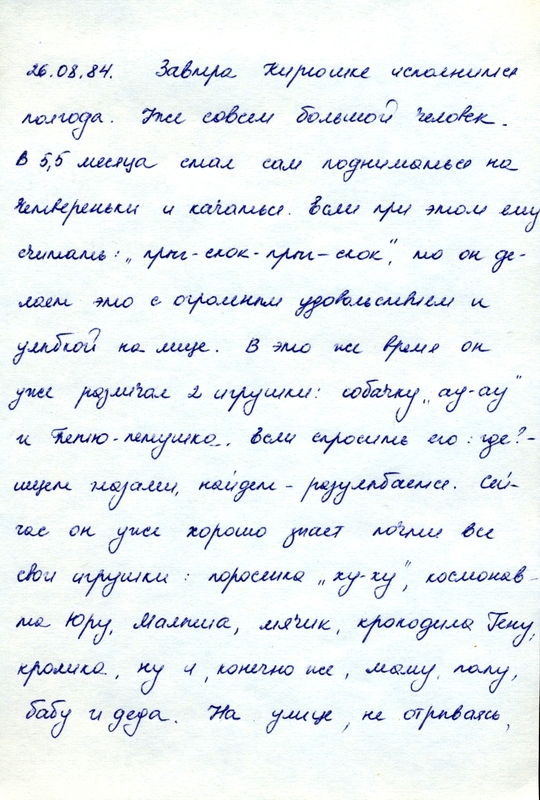 26.08.84. Завтра Кирюшке исполнится
полгода. Уже совсем большой человек.
В 5,5 месяца стал сам подниматься на
четвереньки и качаться. Если при этом ему
считать: „прыг-скок-прыг-скок", то он де-
лает это с огромным удовольствием и
улыбкой на лице. В это же время он
уже различал 2 игрушки: собачку „ау-ау"
и Петю-петушка. Если спросить его: где?-
ищет глазами, найдет - разулыбается. Сей-
час он уже хорошо знает почти все
свои игрушки: поросенка „ху-ху", космонав-
та Юру, Малыша, мячик, крокодила Гену,
кролика, ну и, конечно же, маму, папу,
бабу и деда. На улице, не отрываясь,